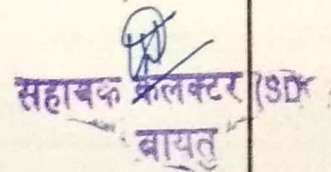 सहायक कलक्टर (SDK
बायतु